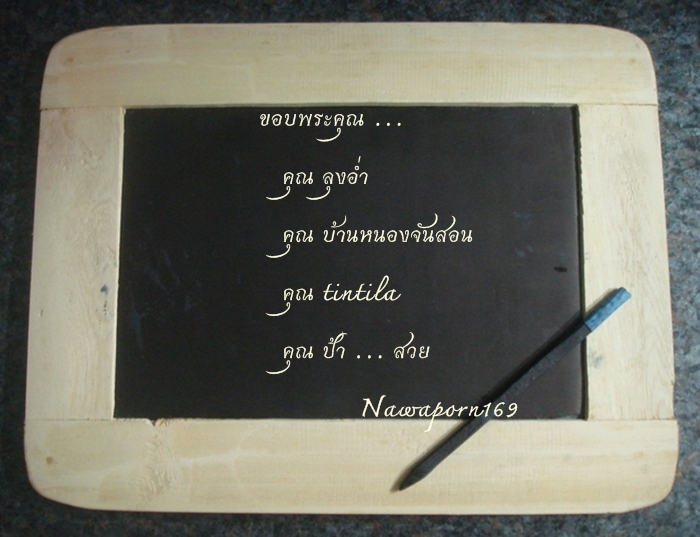 ขอบพระคุณ ...
คุณ ลุงอ่ำ
คุณ บ้านหนองจันสอน
คุณ tintila
คุณ ป้า ... สวย
Nawaporn169